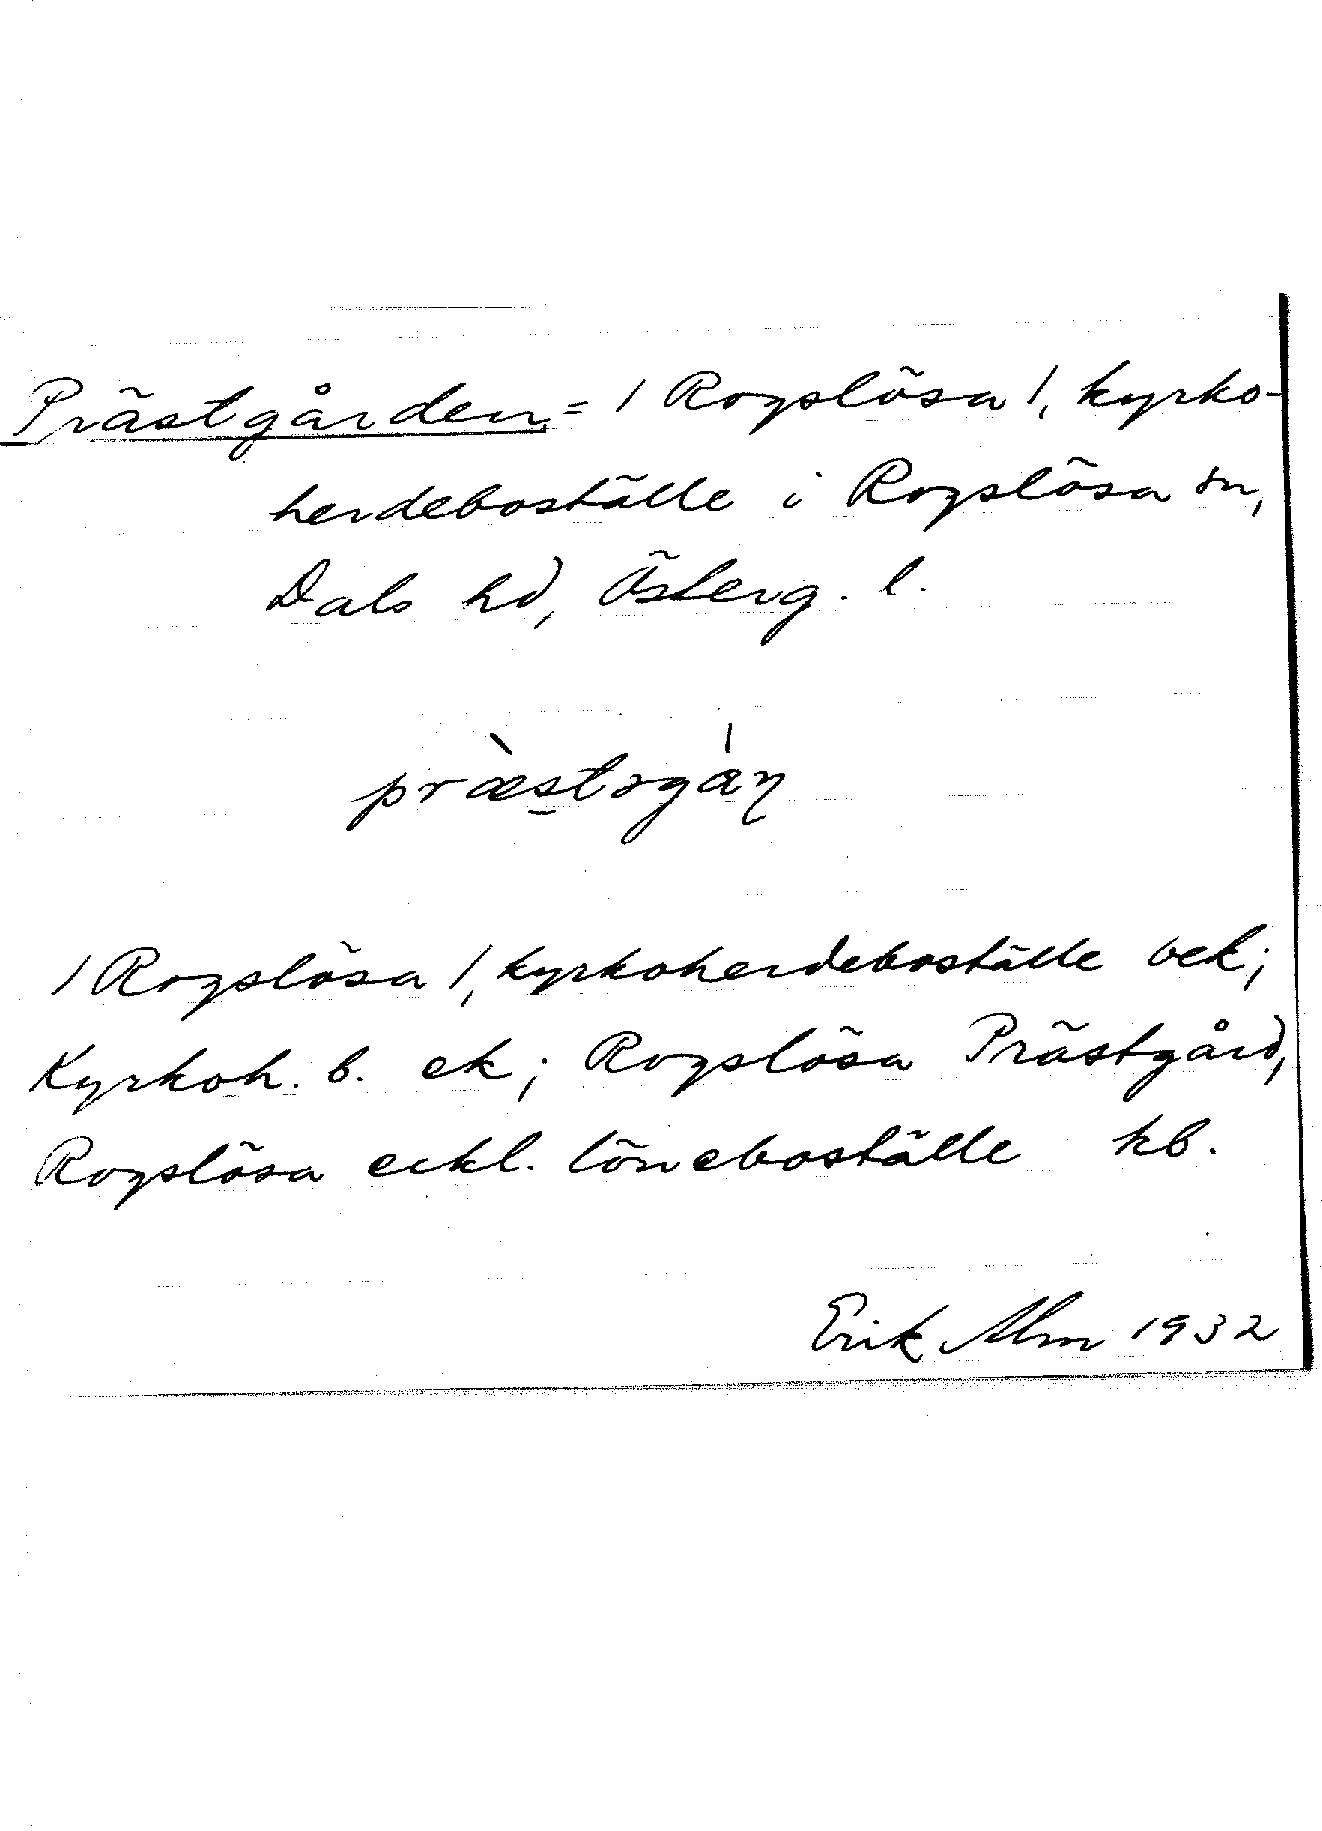 Prästgården = / Rogslösa /, kyrko-
herdeboställe i Rogslösa sn,
Dals hd, Österg. l.
præ̀stəgán
/ Rogslösa /, kyrkoherdeboställe bek;
Kyrkoh. b. ek; Rogslösa Prästgård,
Rogslösa eckl. löneboställe kb.
Erik Alm 1932